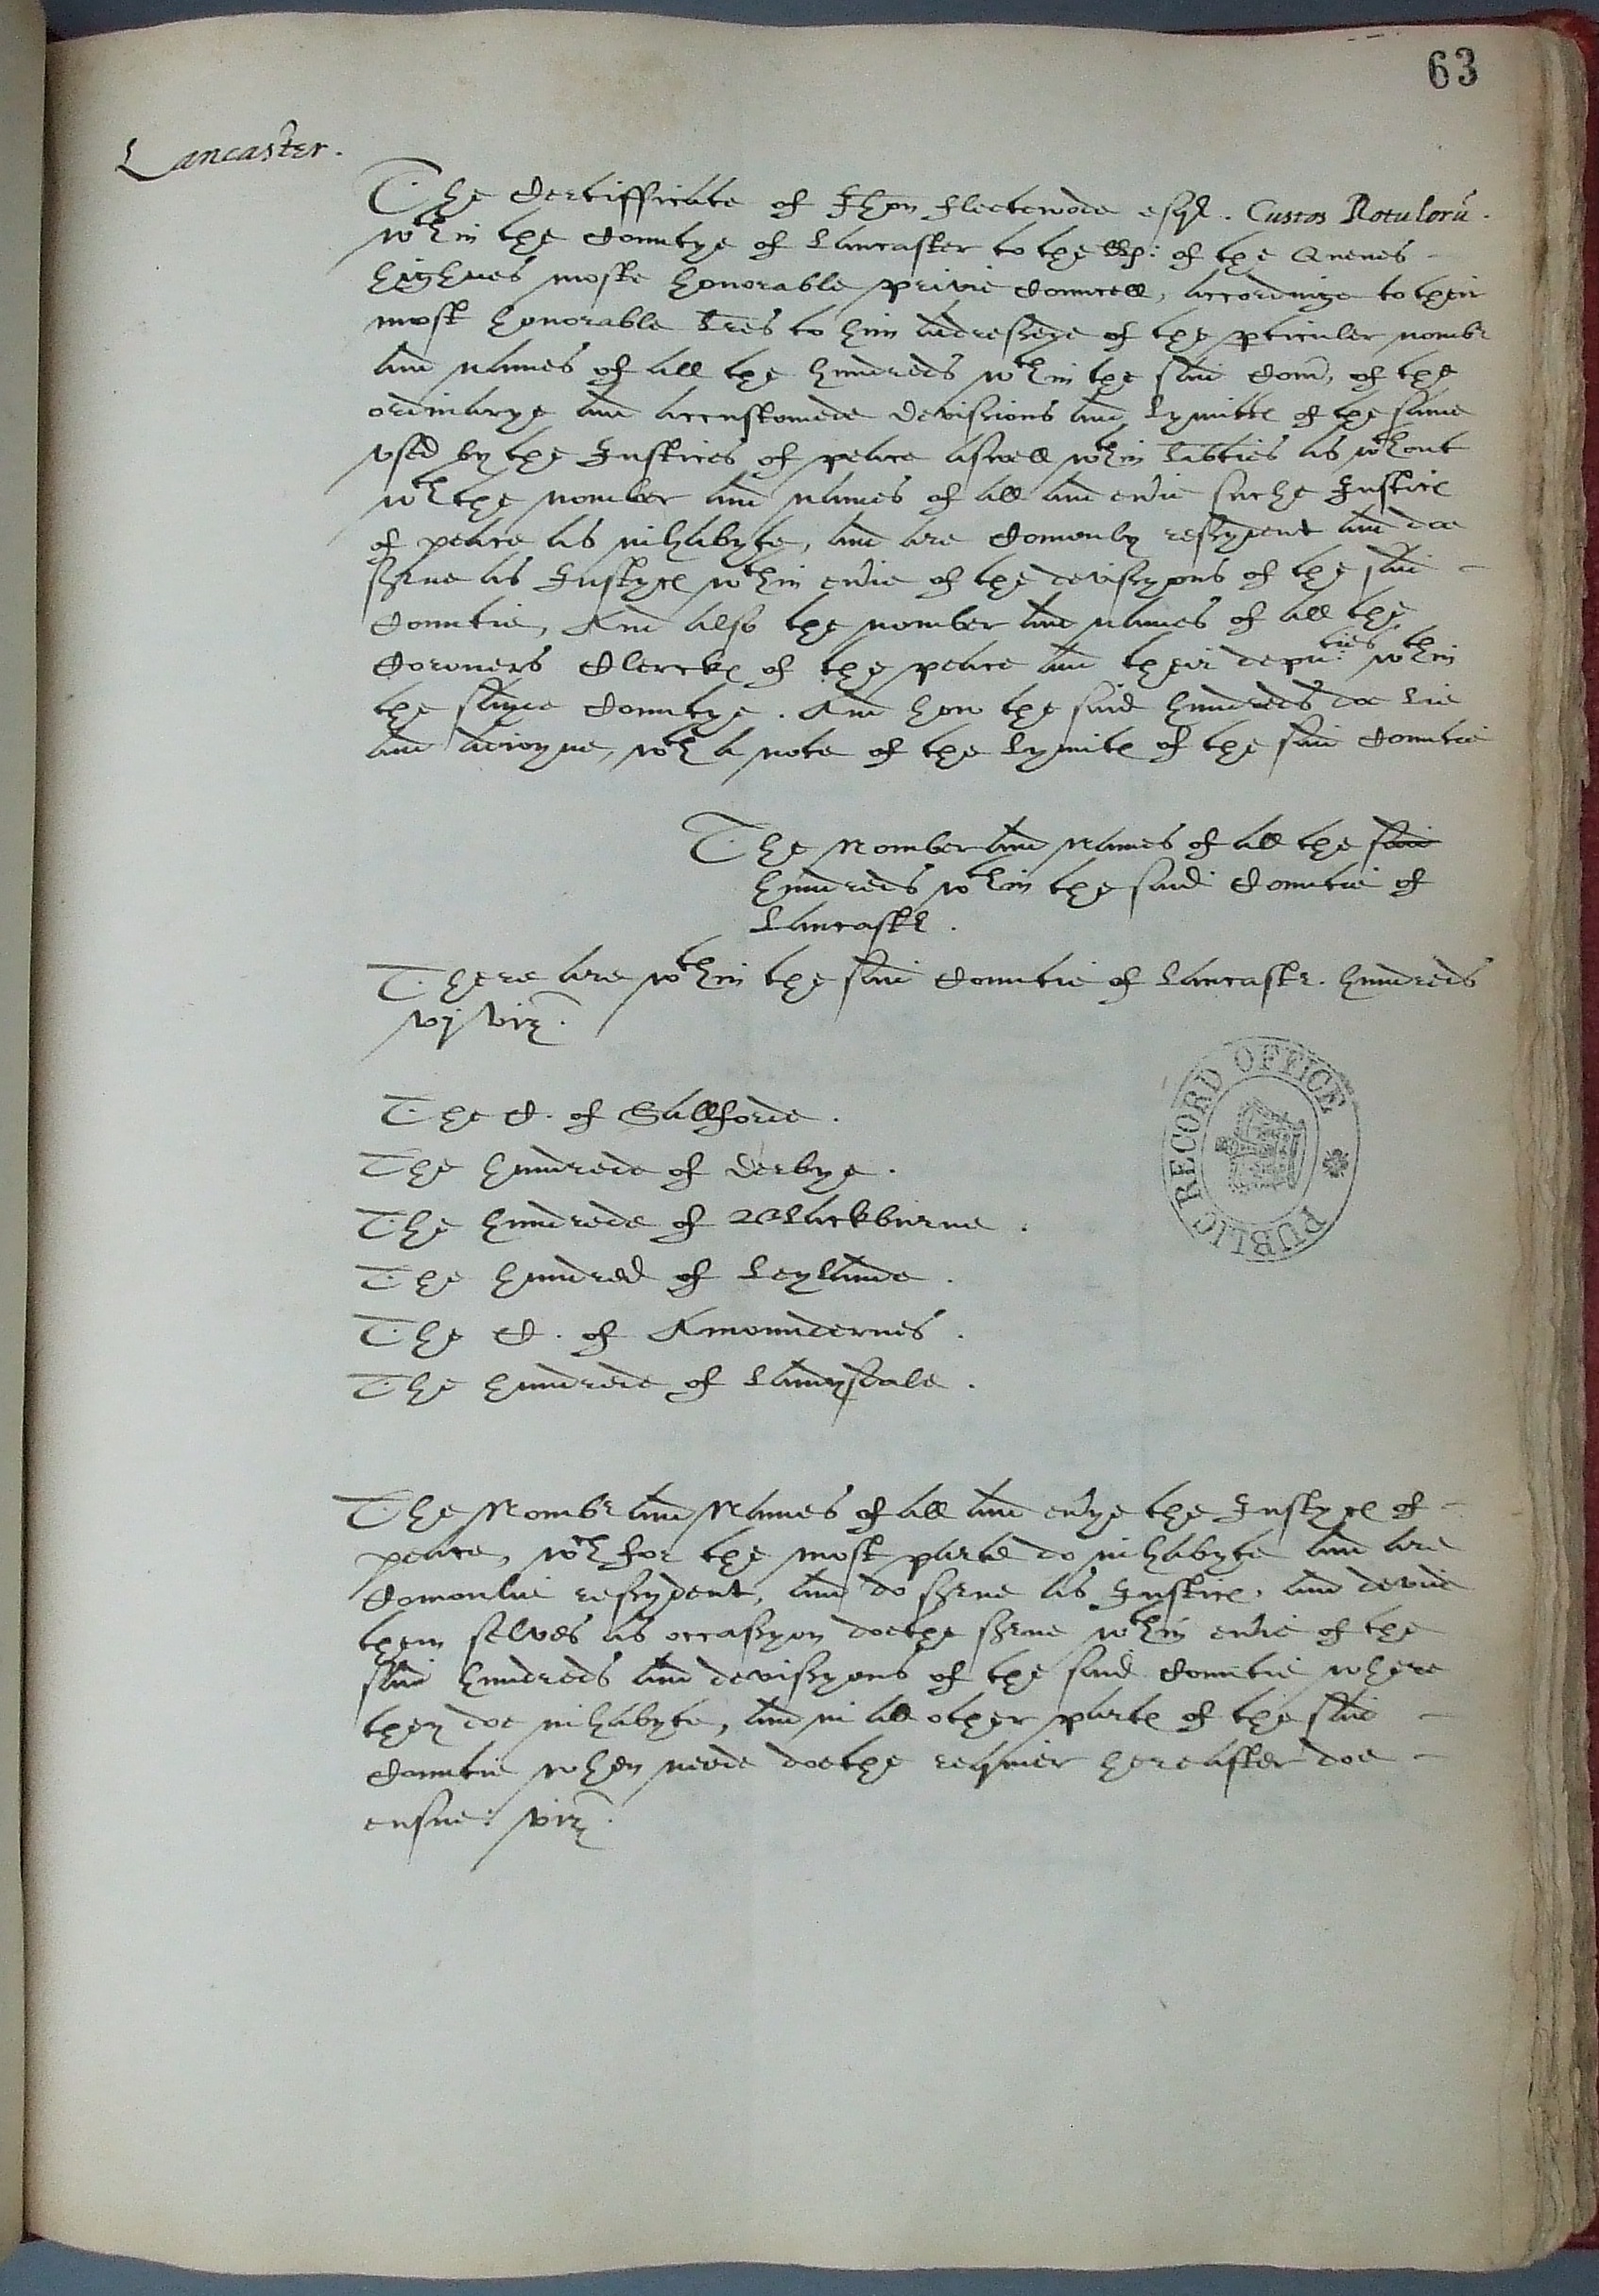 63
Lancaster.
The Certifficate of Jhon fleetwode esqr. Custos Rotulorū.
wth in the Countye of Lancaster to the LLs: of the Quenes
highnes moste honorable privie Councell, accordinge to their
most honorable lres to him addressede of the pticuler nombr
and names of all the hundreds wth in the said Com, of the
ordinarye and accustomede devissions and lymittes of the same
vsed by the Justices of peace aswell wthin libties as wthout
wth the nomber and names of all and evrie suche Justices
of peace as inhabyte, and are Comonly ressydent and doe
serue as Justyces wthin evrie of the devissyons of the said
Countie, And also the nomber and names of all the
Coroners Clerckes of the peace and their deputies wthin
the sayde Countye. And how the said hundreds doe lie
and adioyne, wth a note of the lymites of the said Countie
The Nomber and Names of all the said
hundreds wthin the said Countie of
Lancastr.
There are wthin the said Countie of Lancastr. hundreds
vj viz.
The C. of Sallforde.
The hundrede of Derbye.
The hundrede of Blackburne.
The hundred of Leylande.
The C. of Amoundernes.
The hundrede of Lanysdale.
PUBLIC RECORD OFFICE
The Nombr and Names of all and evrye the Justyces of
peace, wch for the most parte do inhabyte and are
Comonlie ressydent, and do serue as Justices, and devide
them selves as occassyon doethe serue wthin evrie of the
said hundreds and devissyons of the said Countie where
they doe inhabyte, and in all other partes of the said
Countie when neede doethe requier hereafter doe
ensue: viz.